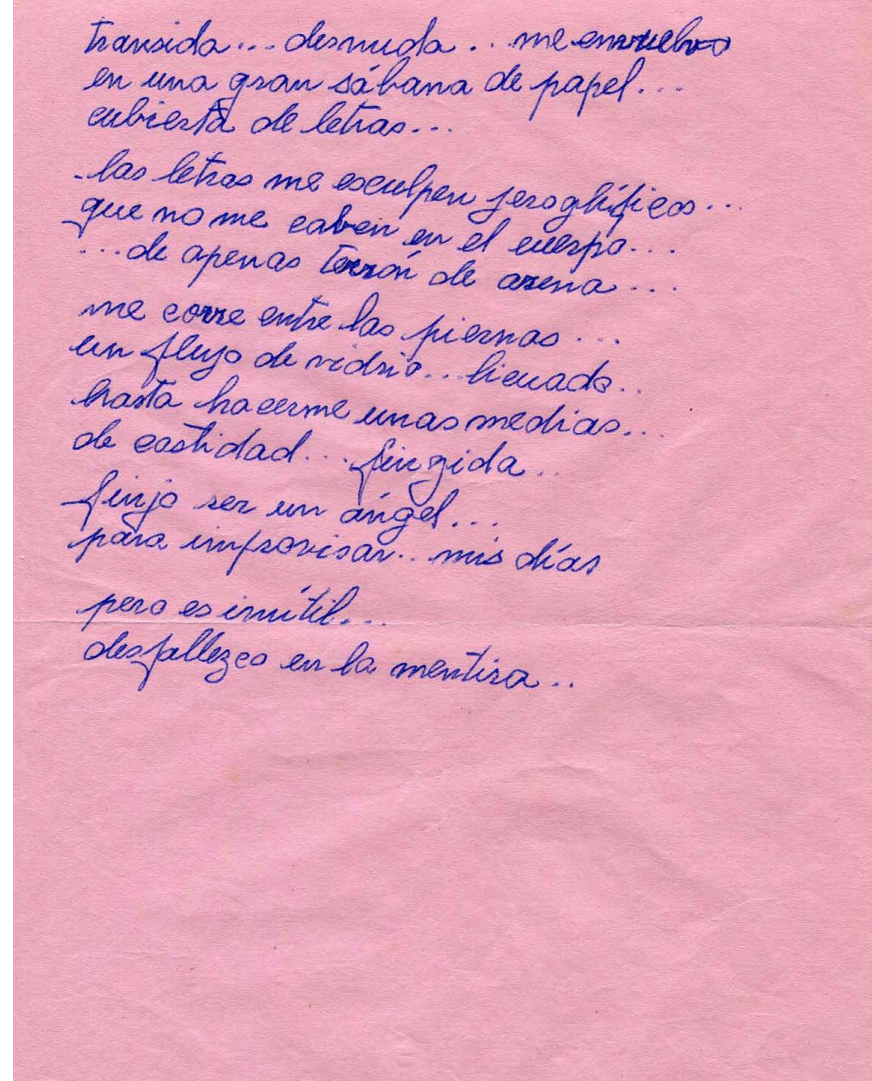 transida... desnuda... me envuelvo
en una gran sábana de papel...
cubierta de letras...
las letras me esculpen jeroglíficos...
que no me caben en el cuerpo...
...de apenas terrón de arena...
me corre entre las piernas...
un flujo de vidrio... licuado..
hasta hacerme unas medias...
de castidad... fingida..
finjo ser un ángel...
para improvisar... mis días
pero es inútil...
desfallezco en la mentira...